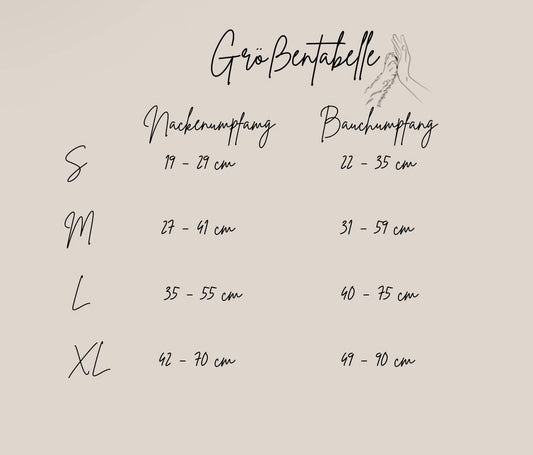 Größentabelle
Nackenumpfamg Bauchumpfang
S 19 - 29 cm 22 - 35 cm
M 27 - 41 cm 31 - 59 cm
L 35 - 55 cm 40 - 75 cm
XL 42 - 70 cm 49 - 90 cm